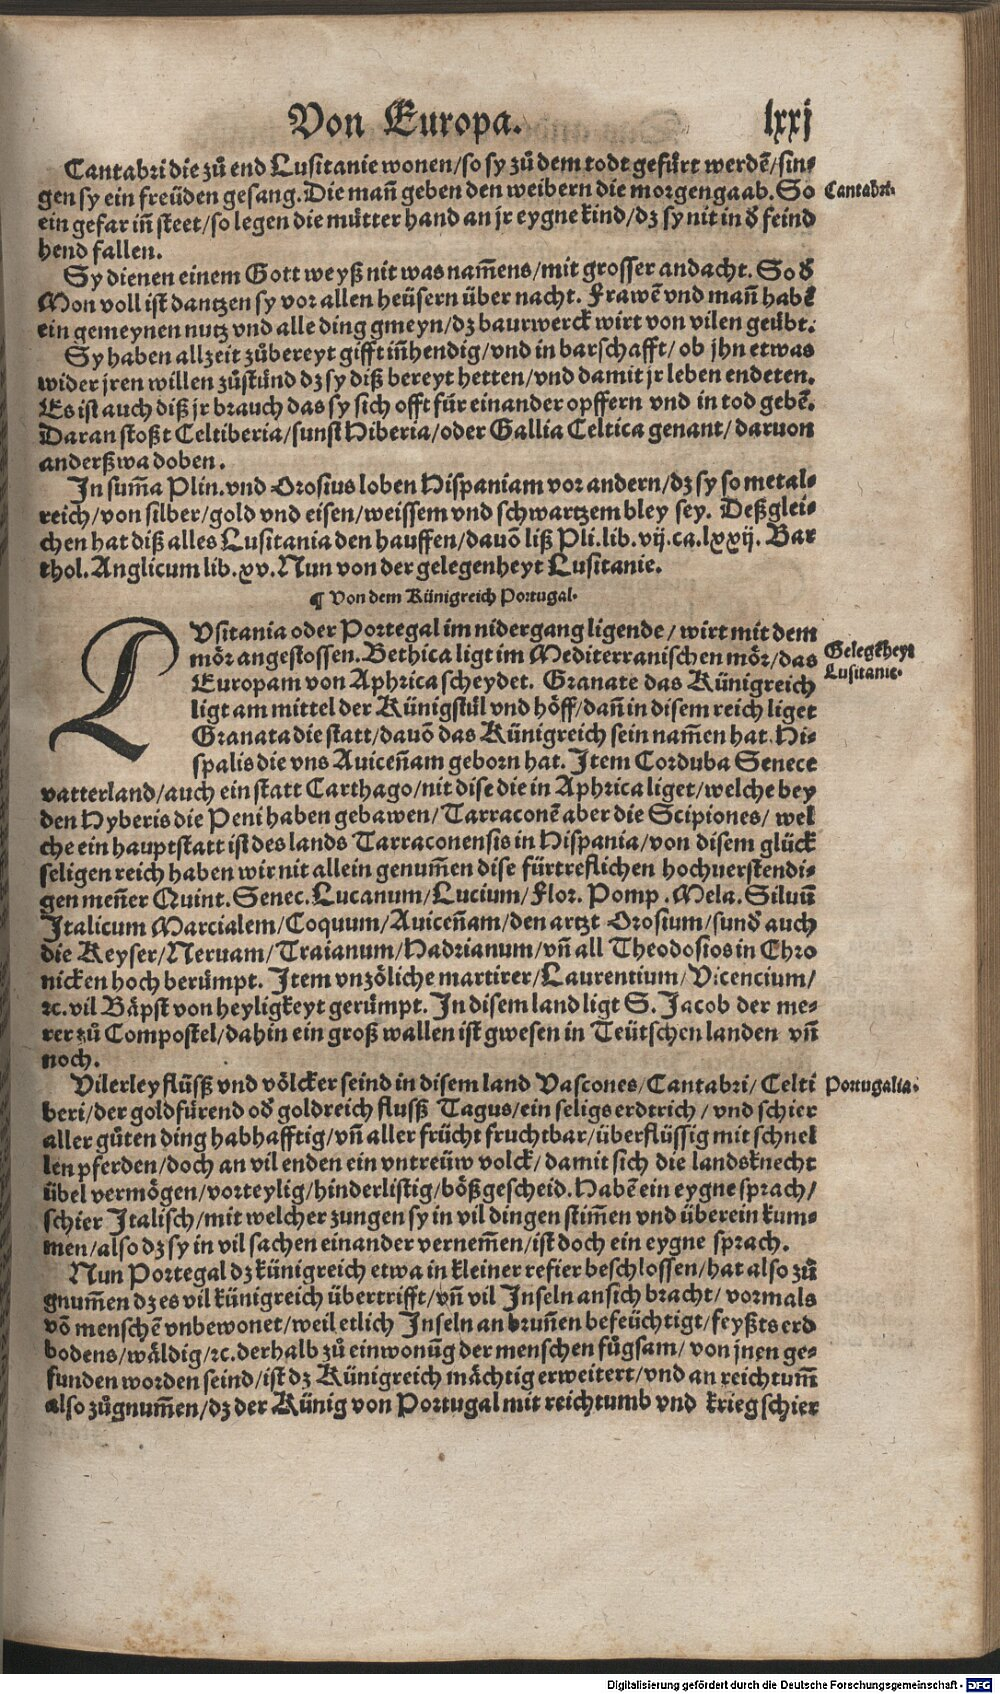 Von Europa. lxxj
Cantabri die zů end Lusitanie wonen/so sy zů dem todt gefürt werdẽ/sin⸗
gen sy ein freüden gesang. Die mañ geben den weibern die morgengaab. So
Cantabri.
ein gefar iñ steet/so legen die můtter hand an jr eygne kind/dz sy nit in d̕ feind
hend fallen.
Sy dienen einem Gott weyß nit was nam̃ens/mit grosser andacht. So d̕
Mon voll ist dantzen sy vor allen heüsern über nacht. Frawẽ vnd mañ habẽ
ein gemeynen nutz vnd alle ding gmeyn/dz baurwerck wirt von vilen geübt.
Sy haben allzeit zůbereyt gifft iñhendig/vnd in barschafft/ob jhn etwas
wider jren willen zůstünd dz sy diß bereyt hetten/vnd damit jr leben endeten.
Es ist auch diß jr brauch das sy sich offt für einander opffern vnd in tod gebẽ.
Daran stoßt Celtiberia/sunst Hiberia/oder Gallia Celtica genant/daruon
anderßwa doben.
In sum̃a Plin. vnd Orosius loben Hispaniam vor andern/dz sy so metal⸗
reich/von silber/gold vnd eisen/weissem vnd schwartzem bley sey. Deßglei⸗
chen hat diß alles Lusitania den hauffen/dauõ liß Pli. lib. vij. ca. lxxij. Bar
thol. Anglicum lib. xv. Nun von der gelegenheyt Lusitanie.
¶ Von dem Künigreich Portugal.
LVsitania oder Portegal im nidergang ligende/wirt mit dem
mör angestossen. Bethica ligt im Mediterranischen mör/das
Gelegẽheyt
Lusitanie.
Europam von Aphrica scheydet. Granate das Künigreich
ligt am mittel der Künigstůl vnd höff/dañ in disem reich liget
Granata die statt/dauõ das Künigreich sein nam̃en hat. Hi⸗
spalis die vns Auiceñam geborn hat. Item Corduba Senece
vatterland/auch ein statt Carthago/nit dise die in Aphrica liget/welche bey
den Hyberis die Peni haben gebawen/Tarraconẽ aber die Scipiones/wel
che ein hauptstatt ist des lands Tarraconensis in Hispania/von disem glück
seligen reich haben wir nit allein genum̃en dise fürtreflichen hochuerstendi⸗
gen meñer Quint. Senec. Lucanum/Lucium/Flor. Pomp. Mela. Siluũ
Italicum Marcialem/Coquum/Auiceñam/den artzt Orosium/sund̕ auch
die Keyser/Neruam/Traianum/Hadrianum/vñ all Theodosios in Chro
nicken hoch berümpt. Item vnzöliche martirer/Laurentium/Vicencium/
ꝛc. vil Bäpst von heyligkeyt gerümpt. In disem land ligt S. Jacob der me⸗
rer zů Compostel/dahin ein groß wallen ist gwesen in Teütschen landen vñ
noch.
Vilerley flüsß vnd völcker seind in disem land Vascones/Cantabri/Celti
Portugalia.
beri/der goldfürend od̕ goldreich flusß Tagus/ein seligs erdtrich/vnd schier
aller gůten ding habhafftig/vñ aller frücht fruchtbar/überflüssig mit schnel
len pferden/doch an vil enden ein vntreüw volck/damit sich die landsknecht
übel vermögen/vorteylig/hinderlistig/bößgescheid. Habẽ ein eygne sprach/
schier Italisch/mit welcher zungen sy in vil dingen stim̃en vnd überein kum⸗
men/also dz sy in vil sachen einander vernem̃en/ist doch ein eygne sprach.
Nun Portegal dz künigreich etwa in kleiner refier beschlossen/hat also zů
gnum̃en dz es vil künigreich übertrifft/vñ vil Inseln an sich bracht/vormals
võ menschẽ vnbewonet/weil etlich Inseln an bruñen befeüchtigt/feyßts erd
bodens/wäldig/ꝛc. derhalb zů einwonũg der menschen fůgsam/von jnen ge⸗
funden worden seind/ist dz Künigreich mächtig erweitert/vnd an reichtum̃
also zůgnum̃en/dz der Künig von Portugal mit reichtumb vnd krieg schier
Digitalisierung gefördert durch die Deutsche Forschungsgemeinschaft - DFG